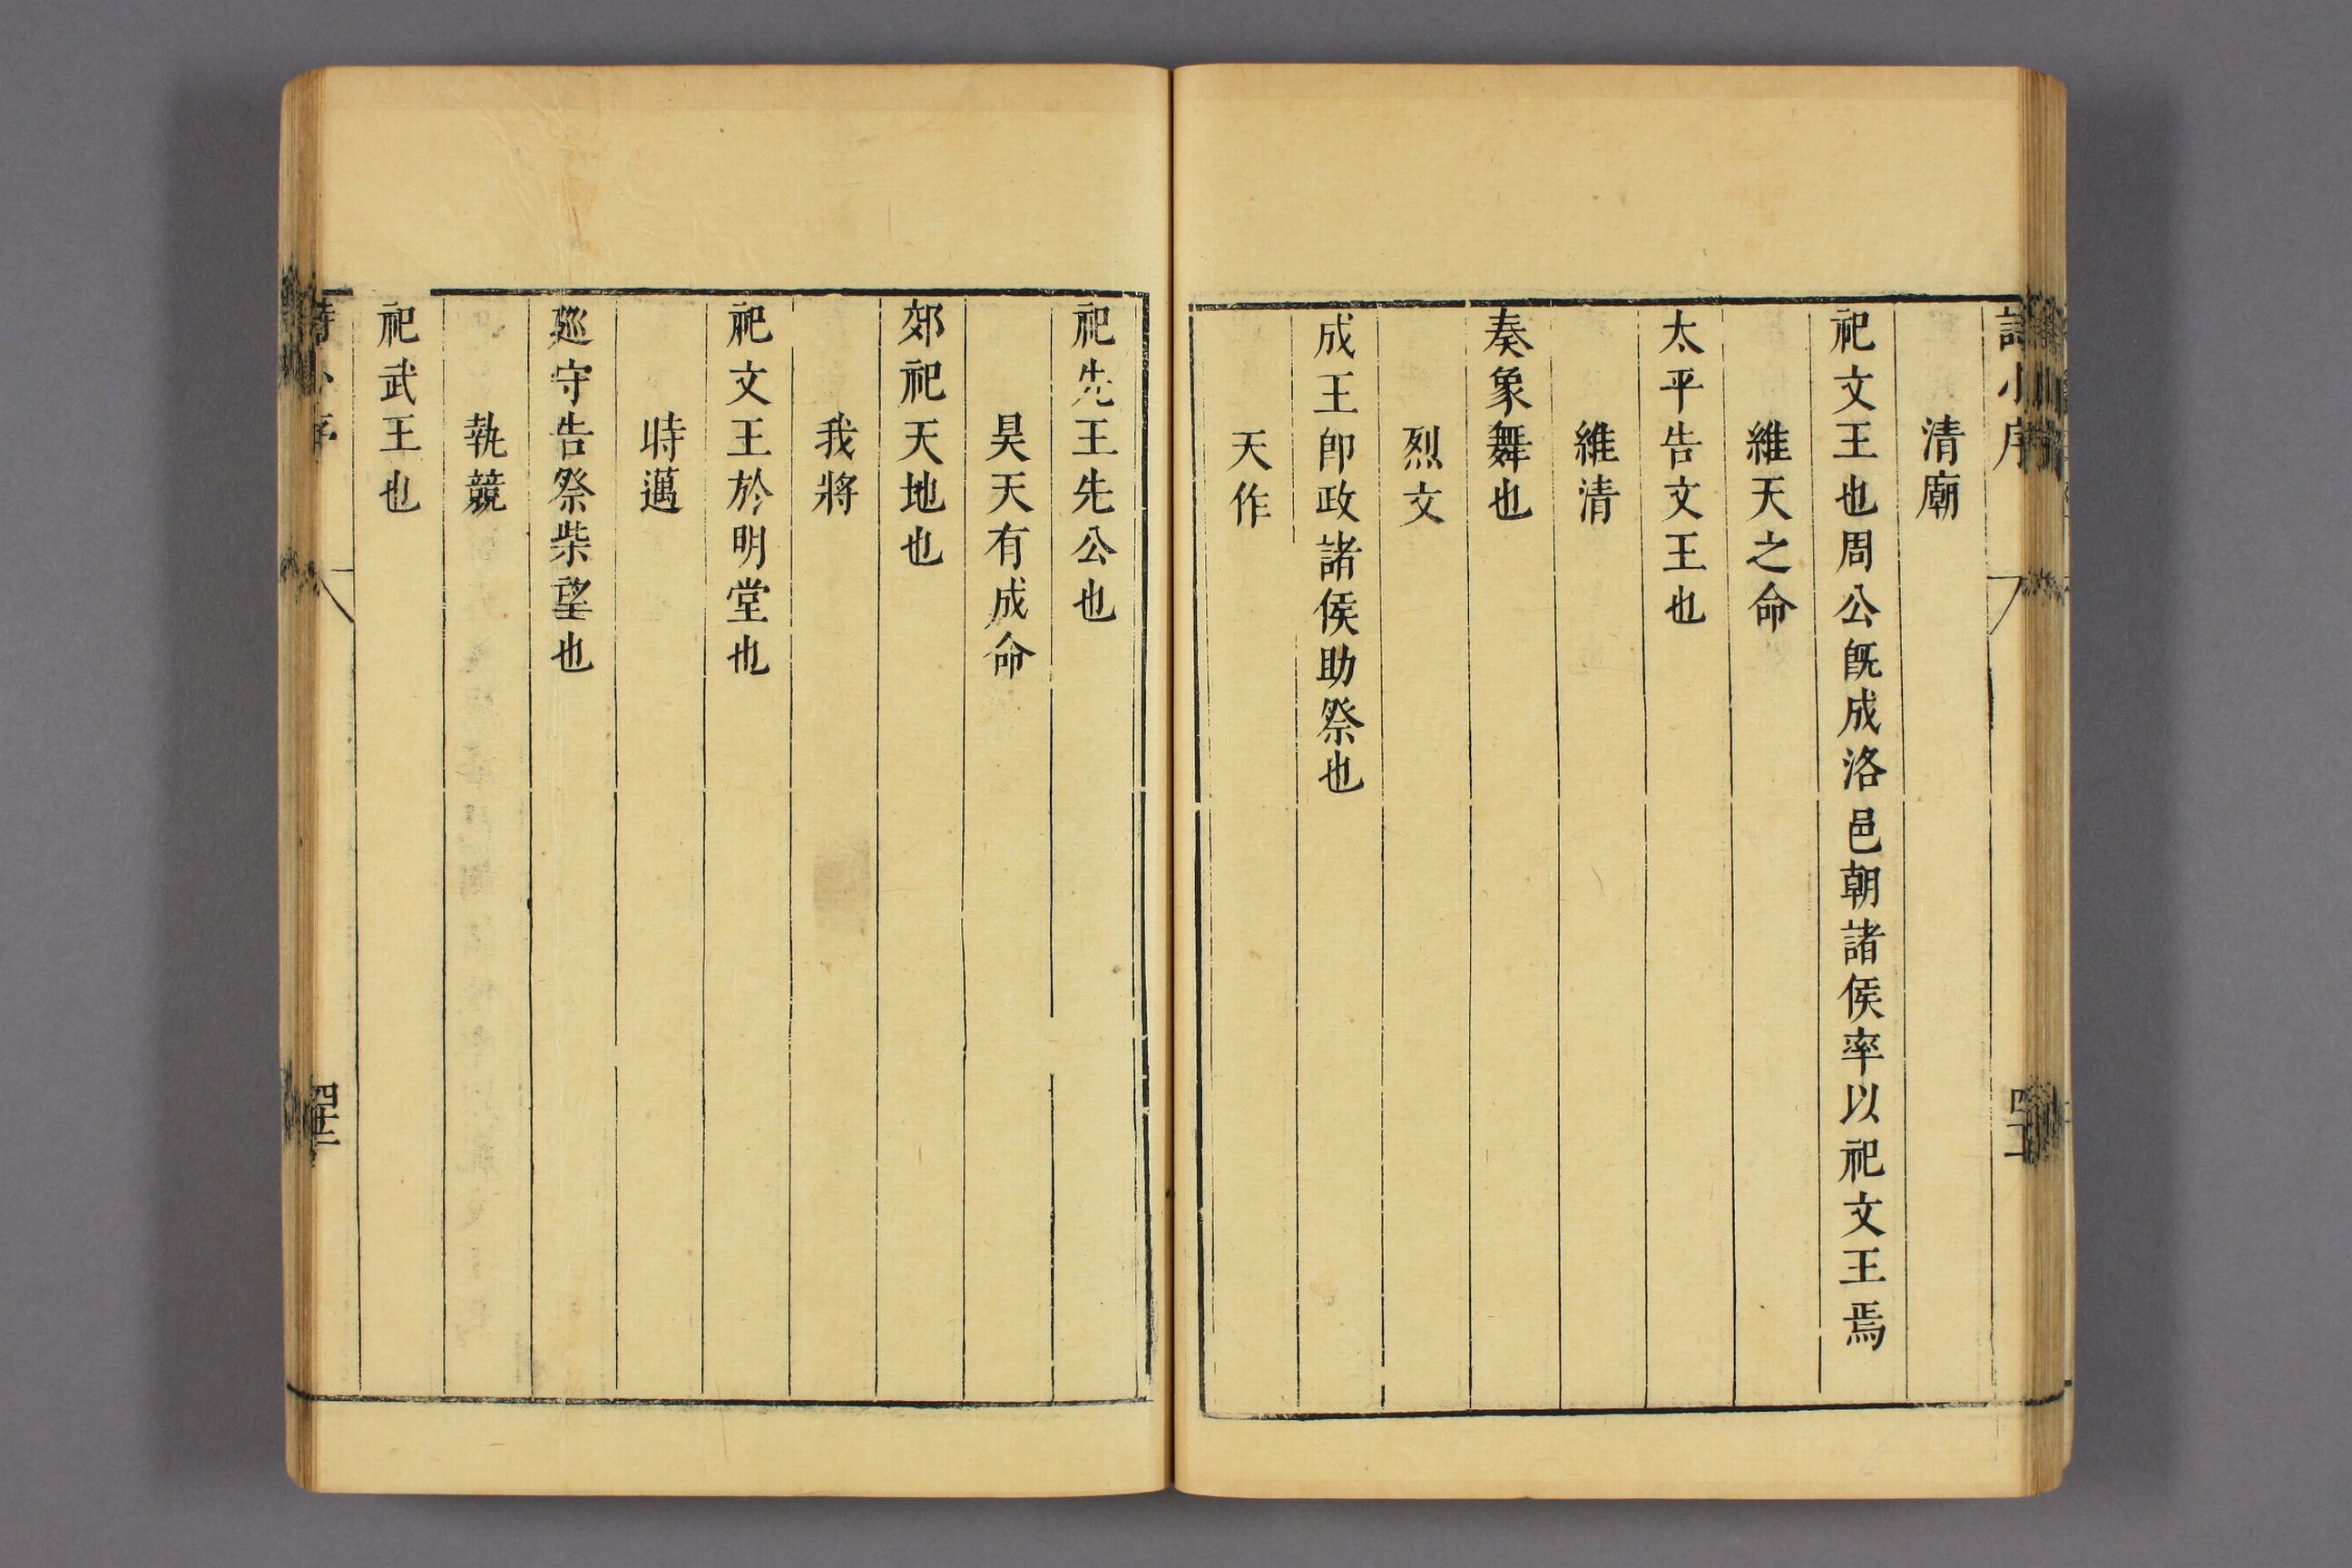 詩小序
清廟
祀文王也周公旣成洛邑朝諸侯率以祀文王焉
維天之命
太平告文王也
維清
奏象舞也
烈文
成王卽政諸侯助祭也
天作
祀先王先公也
昊天有成命
郊祀天地也
我將
祀文王於明堂也
時邁
廵守告祭柴望也
執競
祀武王也
詩小序